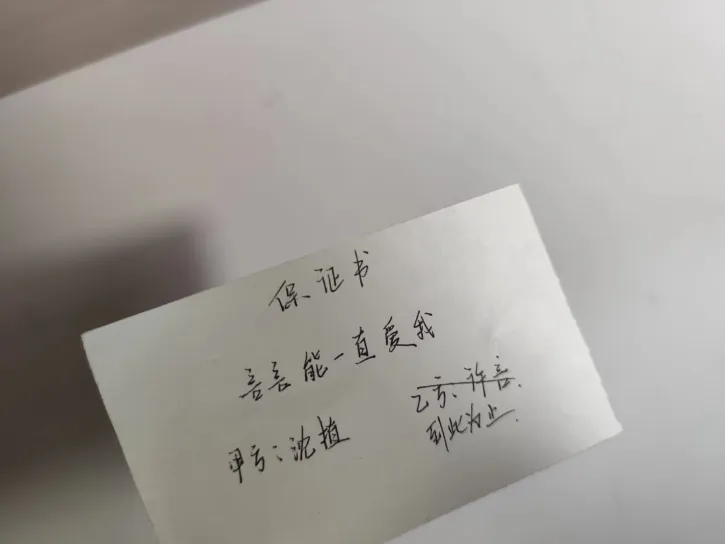 保证书
言言能一直爱我
甲方：沈植
乙方：许言.
到此为止.